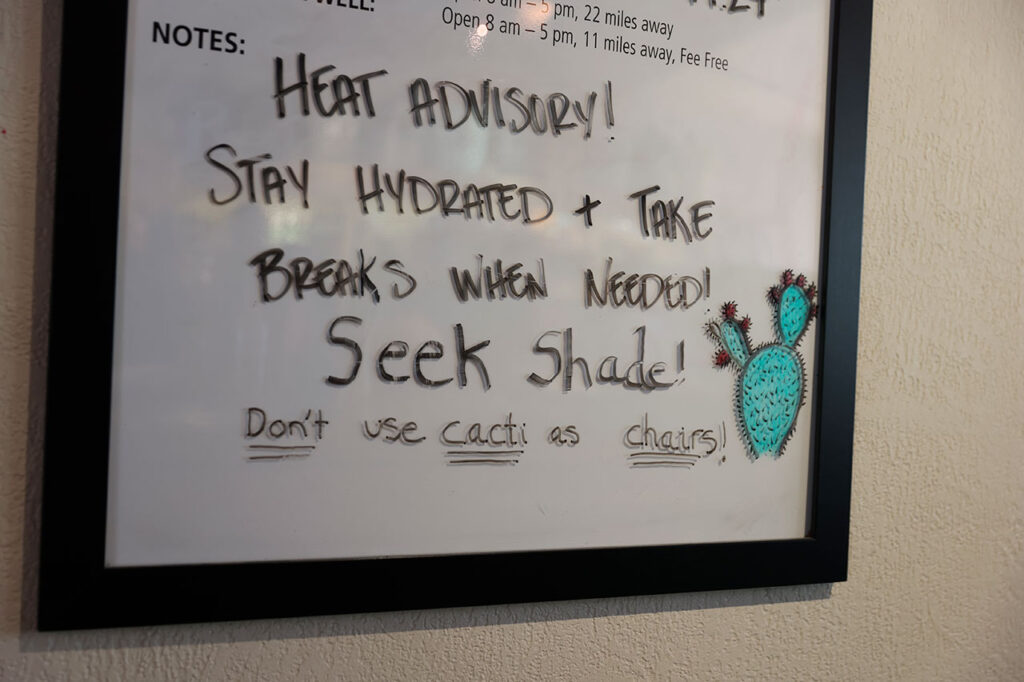 WELL:
5 pm, 22 miles away
Open 8 am – 5 pm, 11 miles away, Fee Free
NOTES:
HEAT ADVISORY!
STAY HYDRATED + TAKE
BREAKS WHEN NEEDED!
Seek Shade!
Don't use cacti as chairs!!